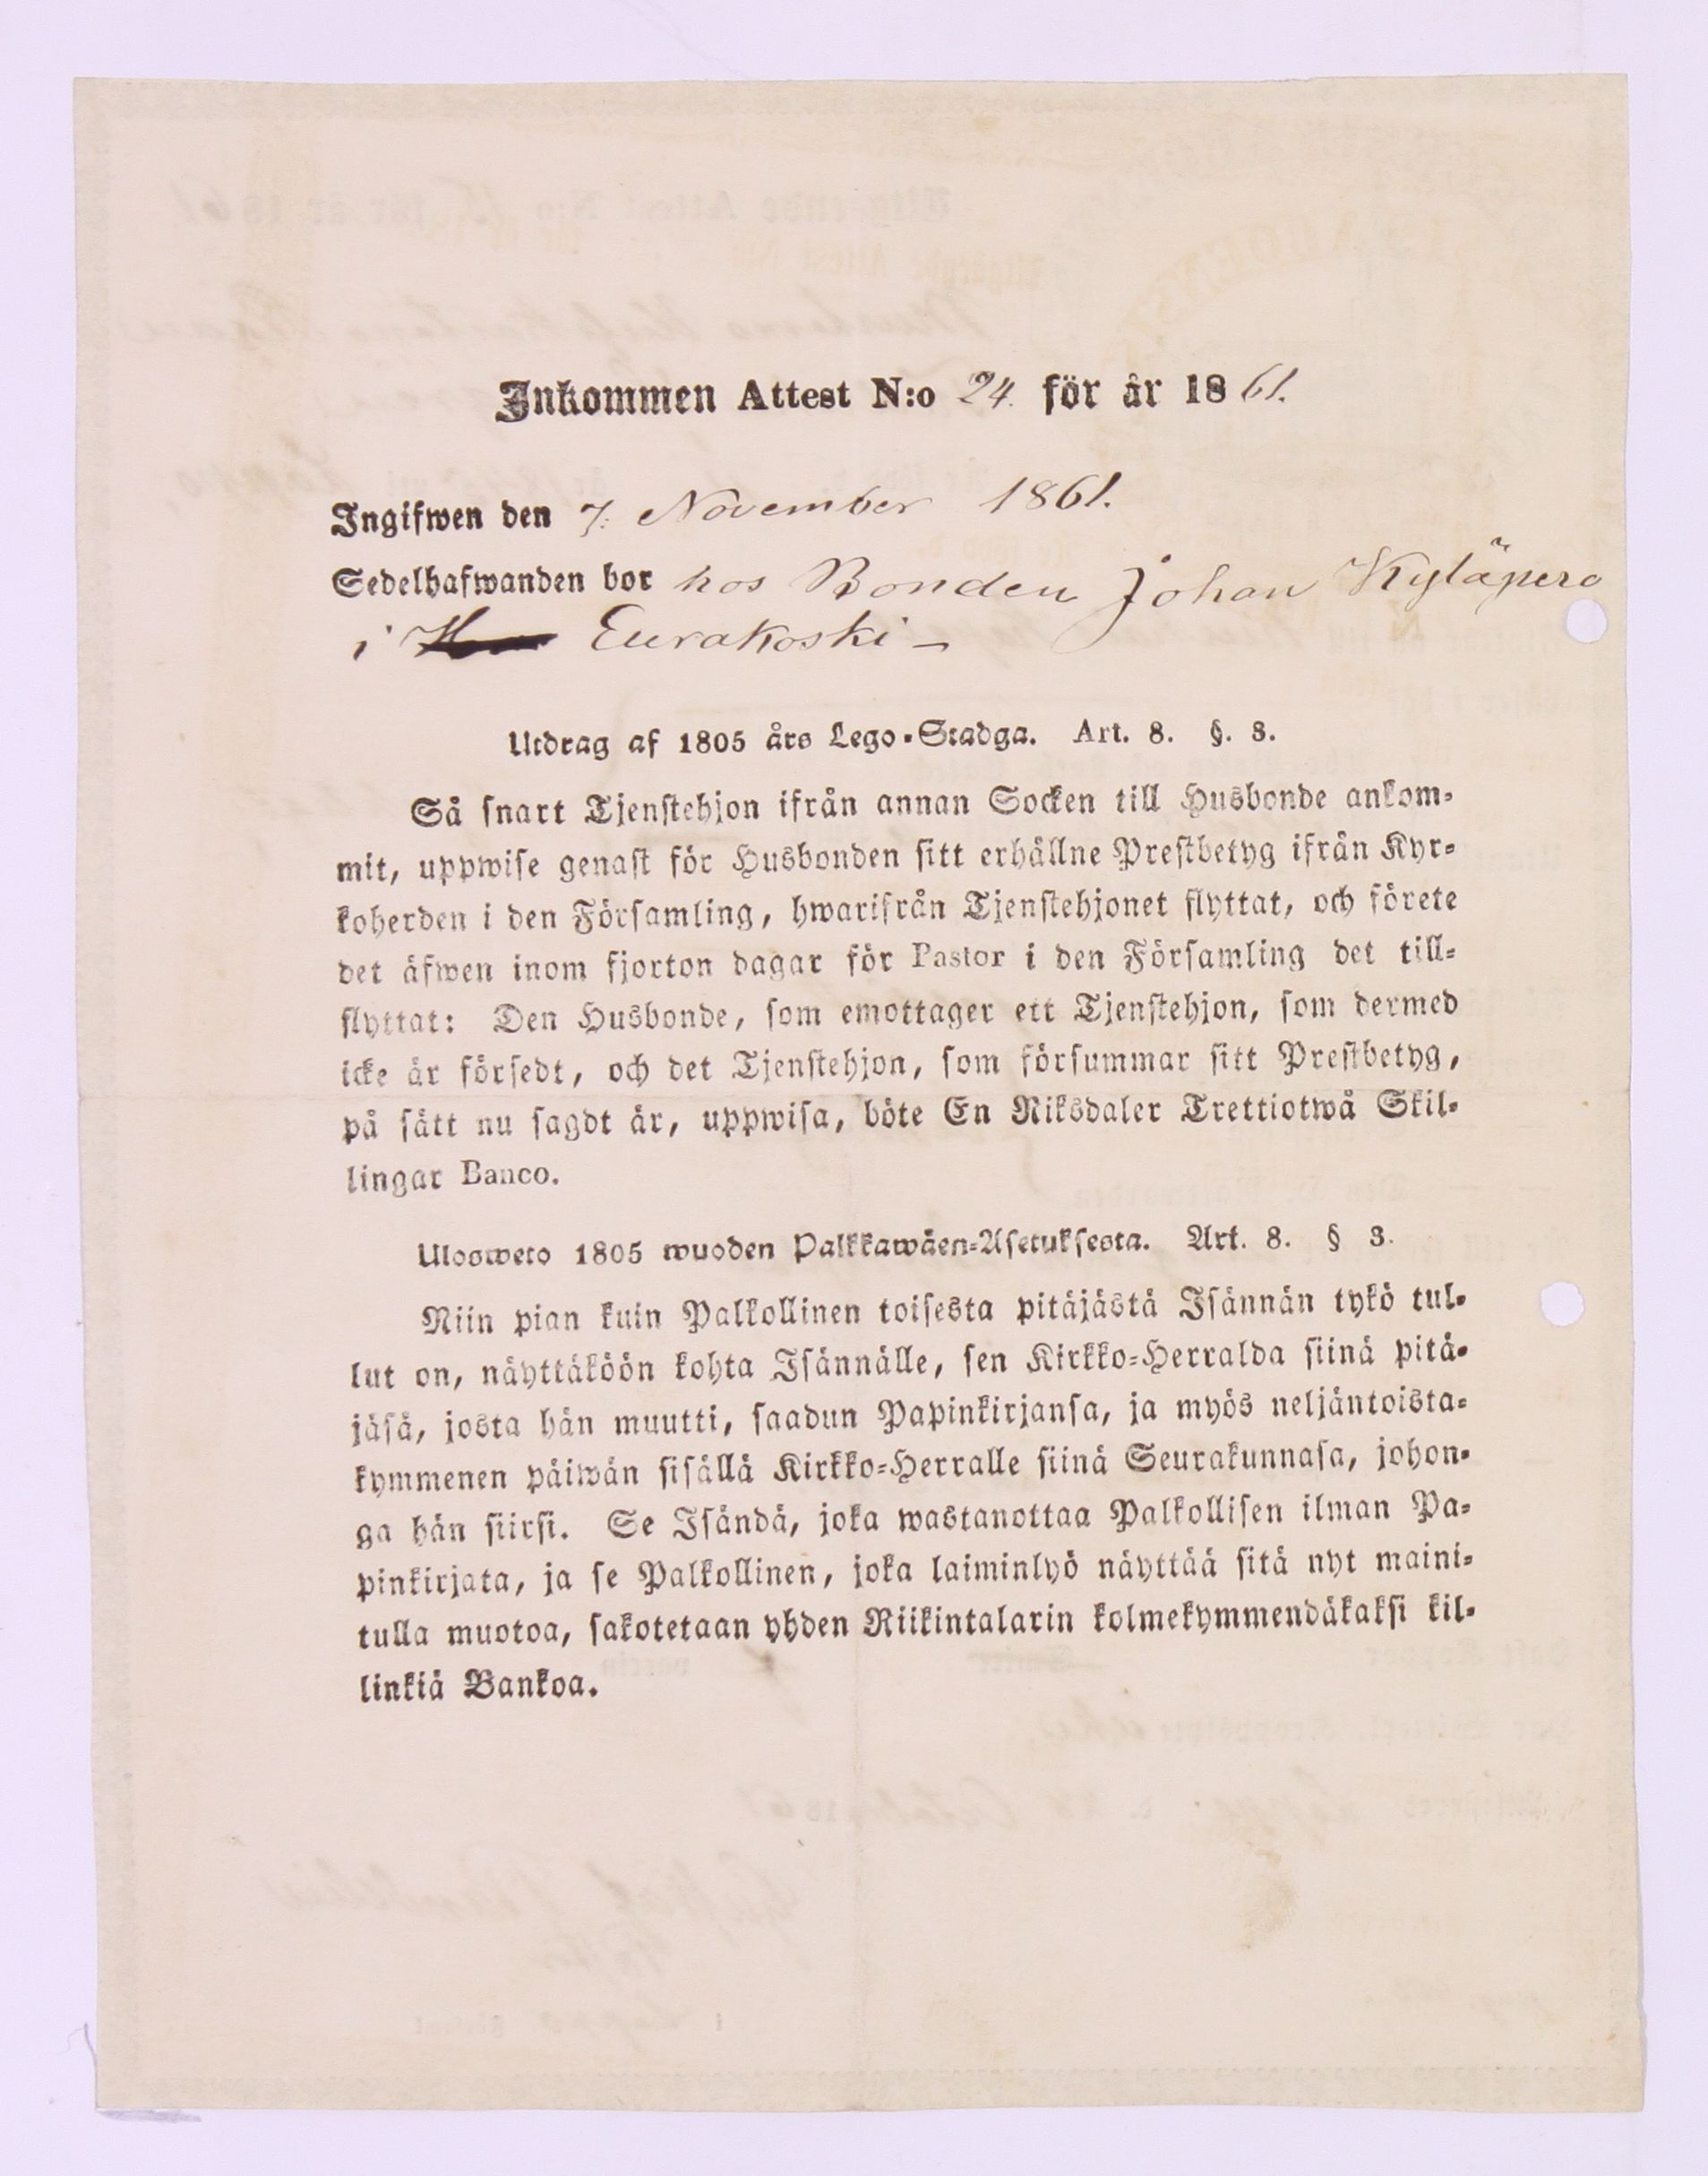 Inkommen Attest N:o 24. för år 1861.
Ingifwen den 7. November 1861.
Sedelhafwanden bor hos Bonden Johan Kyläpero
i Eurakoski –
Utdrag af 1805 års Lego-Stadga. Art. 8. §. 3.
Så snart Tjenstehjon ifrån annan Socken till Husbonde ankom-
mit, uppwise genast för Husbonden sitt erhållne Prestbetyg ifrån Kyr-
koherden i den Församling, hwarifrån Tjenstehjonet flyttat, och förete
det äfwen inom fjorton dagar för Pastor i den Församling det till-
flyttat: Den Husbonde, som emottager ett Tjenstehjon, som dermed
icke är försedt, och det Tjenstehjon, som försummar sitt Prestbetyg,
på sätt nu sagdt är, uppwisa, böte En Riksdaler Trettiotwå Skil-
lingar Banco.
Ulosweto 1805 wuoden Palkkawäen-Asetuksesta. Art. 8. § 3.
Niin pian kuin Palkollinen toisesta pitäjästä Isännän tykö tul-
lut on, näyttäköön kohta Isännälle, sen Kirkko-Herralda siinä pitä-
jäsä, josta hän muutti, saadun Papinkirjansa, ja myös neljäntoista-
kymmenen päiwän sisällä Kirkko-Herralle siinä Seurakunnasa, johon-
ga hän siirsi. Se Isändä, joka wastanottaa Palkollisen ilman Pa-
pinkirjata, ja se Palkollinen, joka laiminlyö näyttää sitä nyt maini-
tulla muotoa, sakotetaan yhden Riikintalarin kolmekymmendäkaksi kil-
linkiä Bankoa.